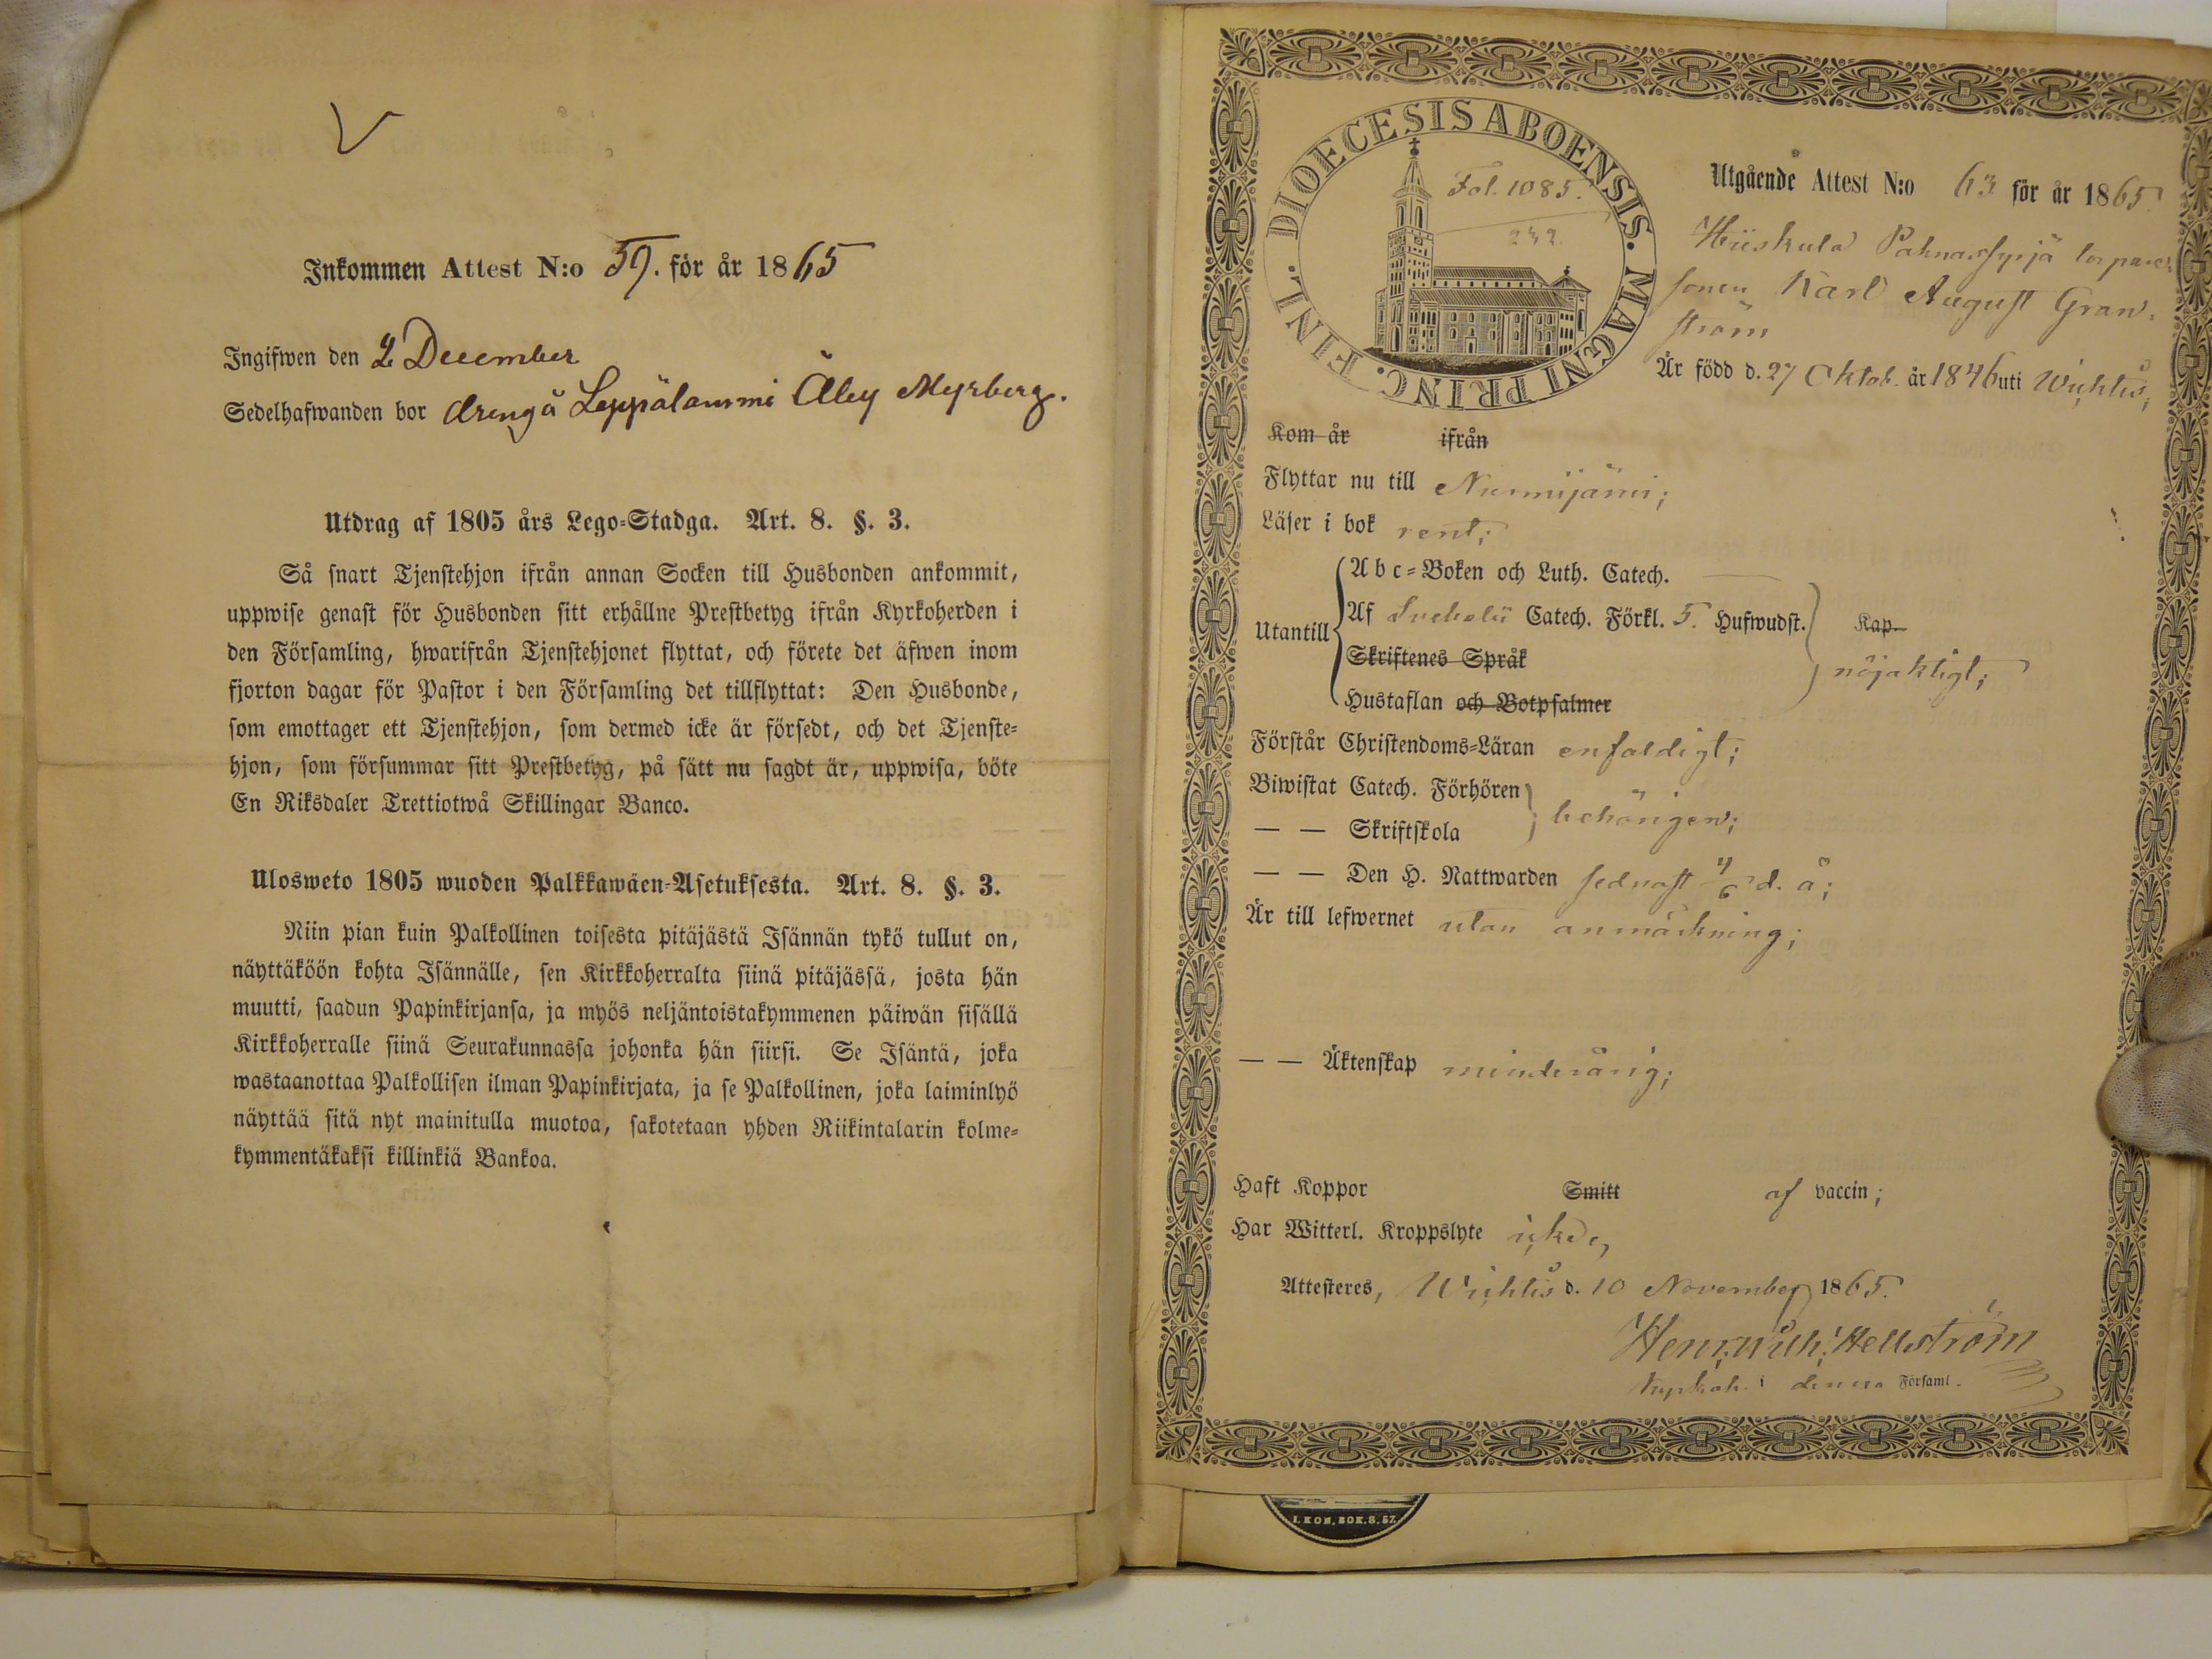 Inkommen Attest N:o 59. för år 1865
Ingifwen den 2 December
Sedelhafwanden bor dreng å Leppälammi Åley Myrberg.
Utdrag af 1805 års Lego-Stadga. Art. 8. §. 3.
Så snart Tjenstehjon ifrån annan Socken till Husbonden ankommit,
uppwise genast för Husbonden sitt erhållne Prestbetyg ifrån Kyrkoherden i
den Församling, hwarifrån Tjenstehjonet flyttat, och förete det äfwen inom
fjorton dagar för Pastor i den Församling det tillflyttat: Den Husbonde,
som emottager ett Tjenstehjon, som dermed icke är försedt, och det Tjenste-
hjon, som försummar sitt Prestbetyg, på sätt nu sagdt är, uppwisa, böte
En Riksdaler Trettiotwå Skillingar Banco.
Ulosweto 1805 wuoden Palkkawäen-Asetuksesta. Art. 8. §. 3.
Niin pian kuin Palkollinen toisesta pitäjästä Isännän tykö tullut on,
näyttäköön kohta Isännälle, sen Kirkkoherralta siinä pitäjässä, josta hän
muutti, saadun Papinkirjansa, ja myös neljäntoistakymmenen päiwän sisällä
Kirkkoherralle siinä Seurakunnassa johonka hän siirsi. Se Isäntä, joka
wastaanottaa Palkollisen ilman Papinkirjata, ja se Palkollinen, joka laiminlyö
näyttää sitä nyt mainitulla muotoa, sakotetaan yhden Riikintalarin kolme-
kymmentäkaksi killinkiä Bankoa.
DIOECESIS ABOENSIS. MAGNI PRINC. FINL.
Fol. 1085.
242.
Utgående Attest N:o 63 för år 1865.
Hiiskula Pahnassyrjä torpare
sonen Karl August Gran-
ström
Är född d. 27 Oktob. år 1846 uti Wichtis;
Kom år ifrån
Flyttar nu till Nurmijärvi;
Läser i bok rent;
Abc-Boken och Luth. Catech.
Utantill Af Svebelii Catech. Förkl. 5. Hufwudst. Kap.
Skriftenes Språk nöjaktigt;
Hustaflan och Botpsalmer
Förstår Christendoms-Läran enfaldigt;
Biwistat Catech. Förhören
— — Skriftskola behörigen;
— — Den H. Nattwarden sednast 4/6 d. å;
Är till lefwernet utan anmärkning;
— — Äktenskap minderårig;
Haft Koppor Smitt af vaccin;
Har Witterl. Kroppslyte icke,
Attesteres, Wichtis d. 10 November 1865.
Henr. Wilh. Hellström
Kyrkoh. i denna Församl.
I. KON. BOK. 8. 57.